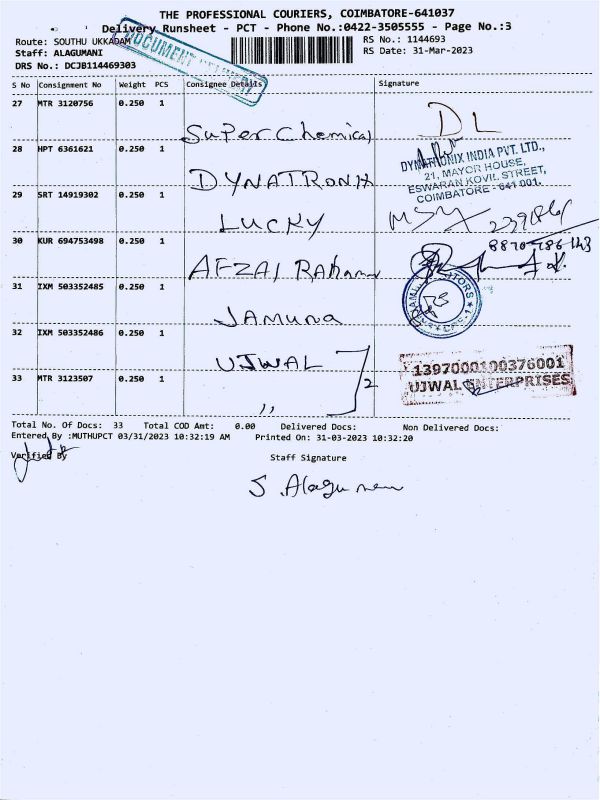 THE PROFESSIONAL COURIERS, COIMBATORE-641037
Delivery Runsheet - PCT - Phone No.:0422-3505555 - Page No.:3
Route: SOUTHU UKKADAM
Staff: ALAGUMANI
DRS No.: DCJB114469303
DOCUMENT
RS No.: 1144693
RS Date: 31-Mar-2023
S No Consignment No Weight PCS Consignee Details Signature
27 MTR 3120756 0.250 1
Super Chemical DL
28 HPT 6361621 0.250 1
DYNATRONIX INDIA PVT. LTD.,
21, MAYOR HOUSE,
ESWARAN KOVIL STREET,
COIMBATORE - 641 001.
DYNATRONIX
29 SRT 14919302 0.250 1
LUCKY
30 KUR 694753498 0.250 1
AFZAL Rahman
31 IXM 503352485 0.250 1
Jamuna
32 IXM 503352486 0.250 1
UJWAL
1397000100376001
UJWAL ENTERPRISES
33 MTR 3123507 0.250 1
,, 2
Total No. Of Docs: 33 Total COD Amt: 0.00 Delivered Docs: Non Delivered Docs:
Entered By :MUTHUPCT 03/31/2023 10:32:19 AM Printed On: 31-03-2023 10:32:20
Verified By Staff Signature
S. Alagumani